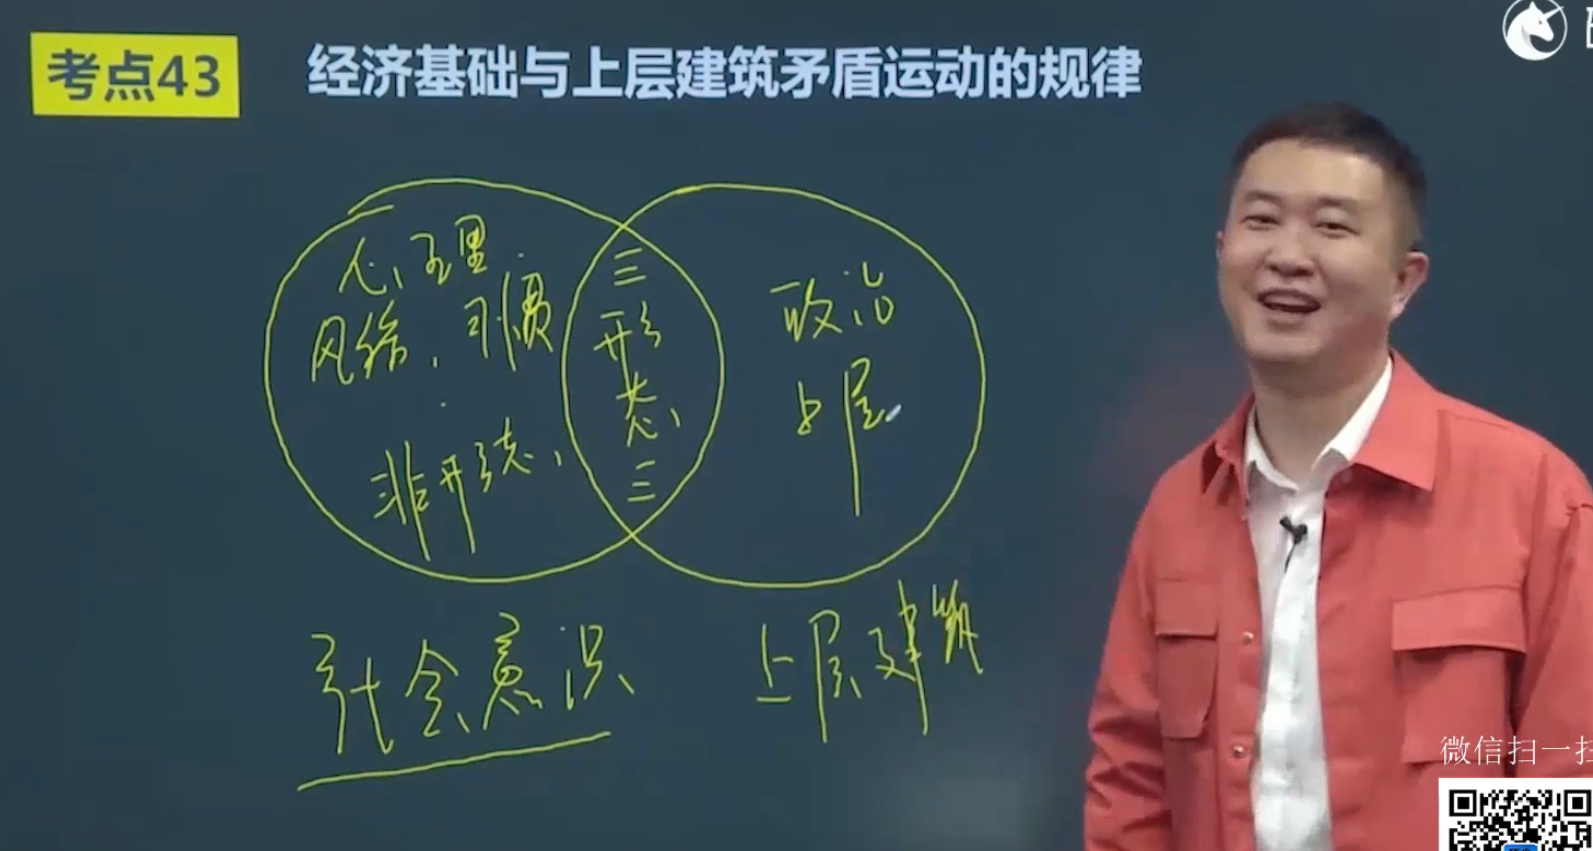 考点43
经济基础与上层建筑矛盾运动的规律
心理
风俗、习惯
非形态
三
形
态
三
政治
上层
社会意识
上层建筑
微信扫一扫